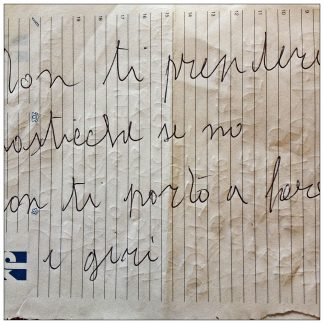 Non ti prendere
pasticche se no
non ti porto a fare
i giri